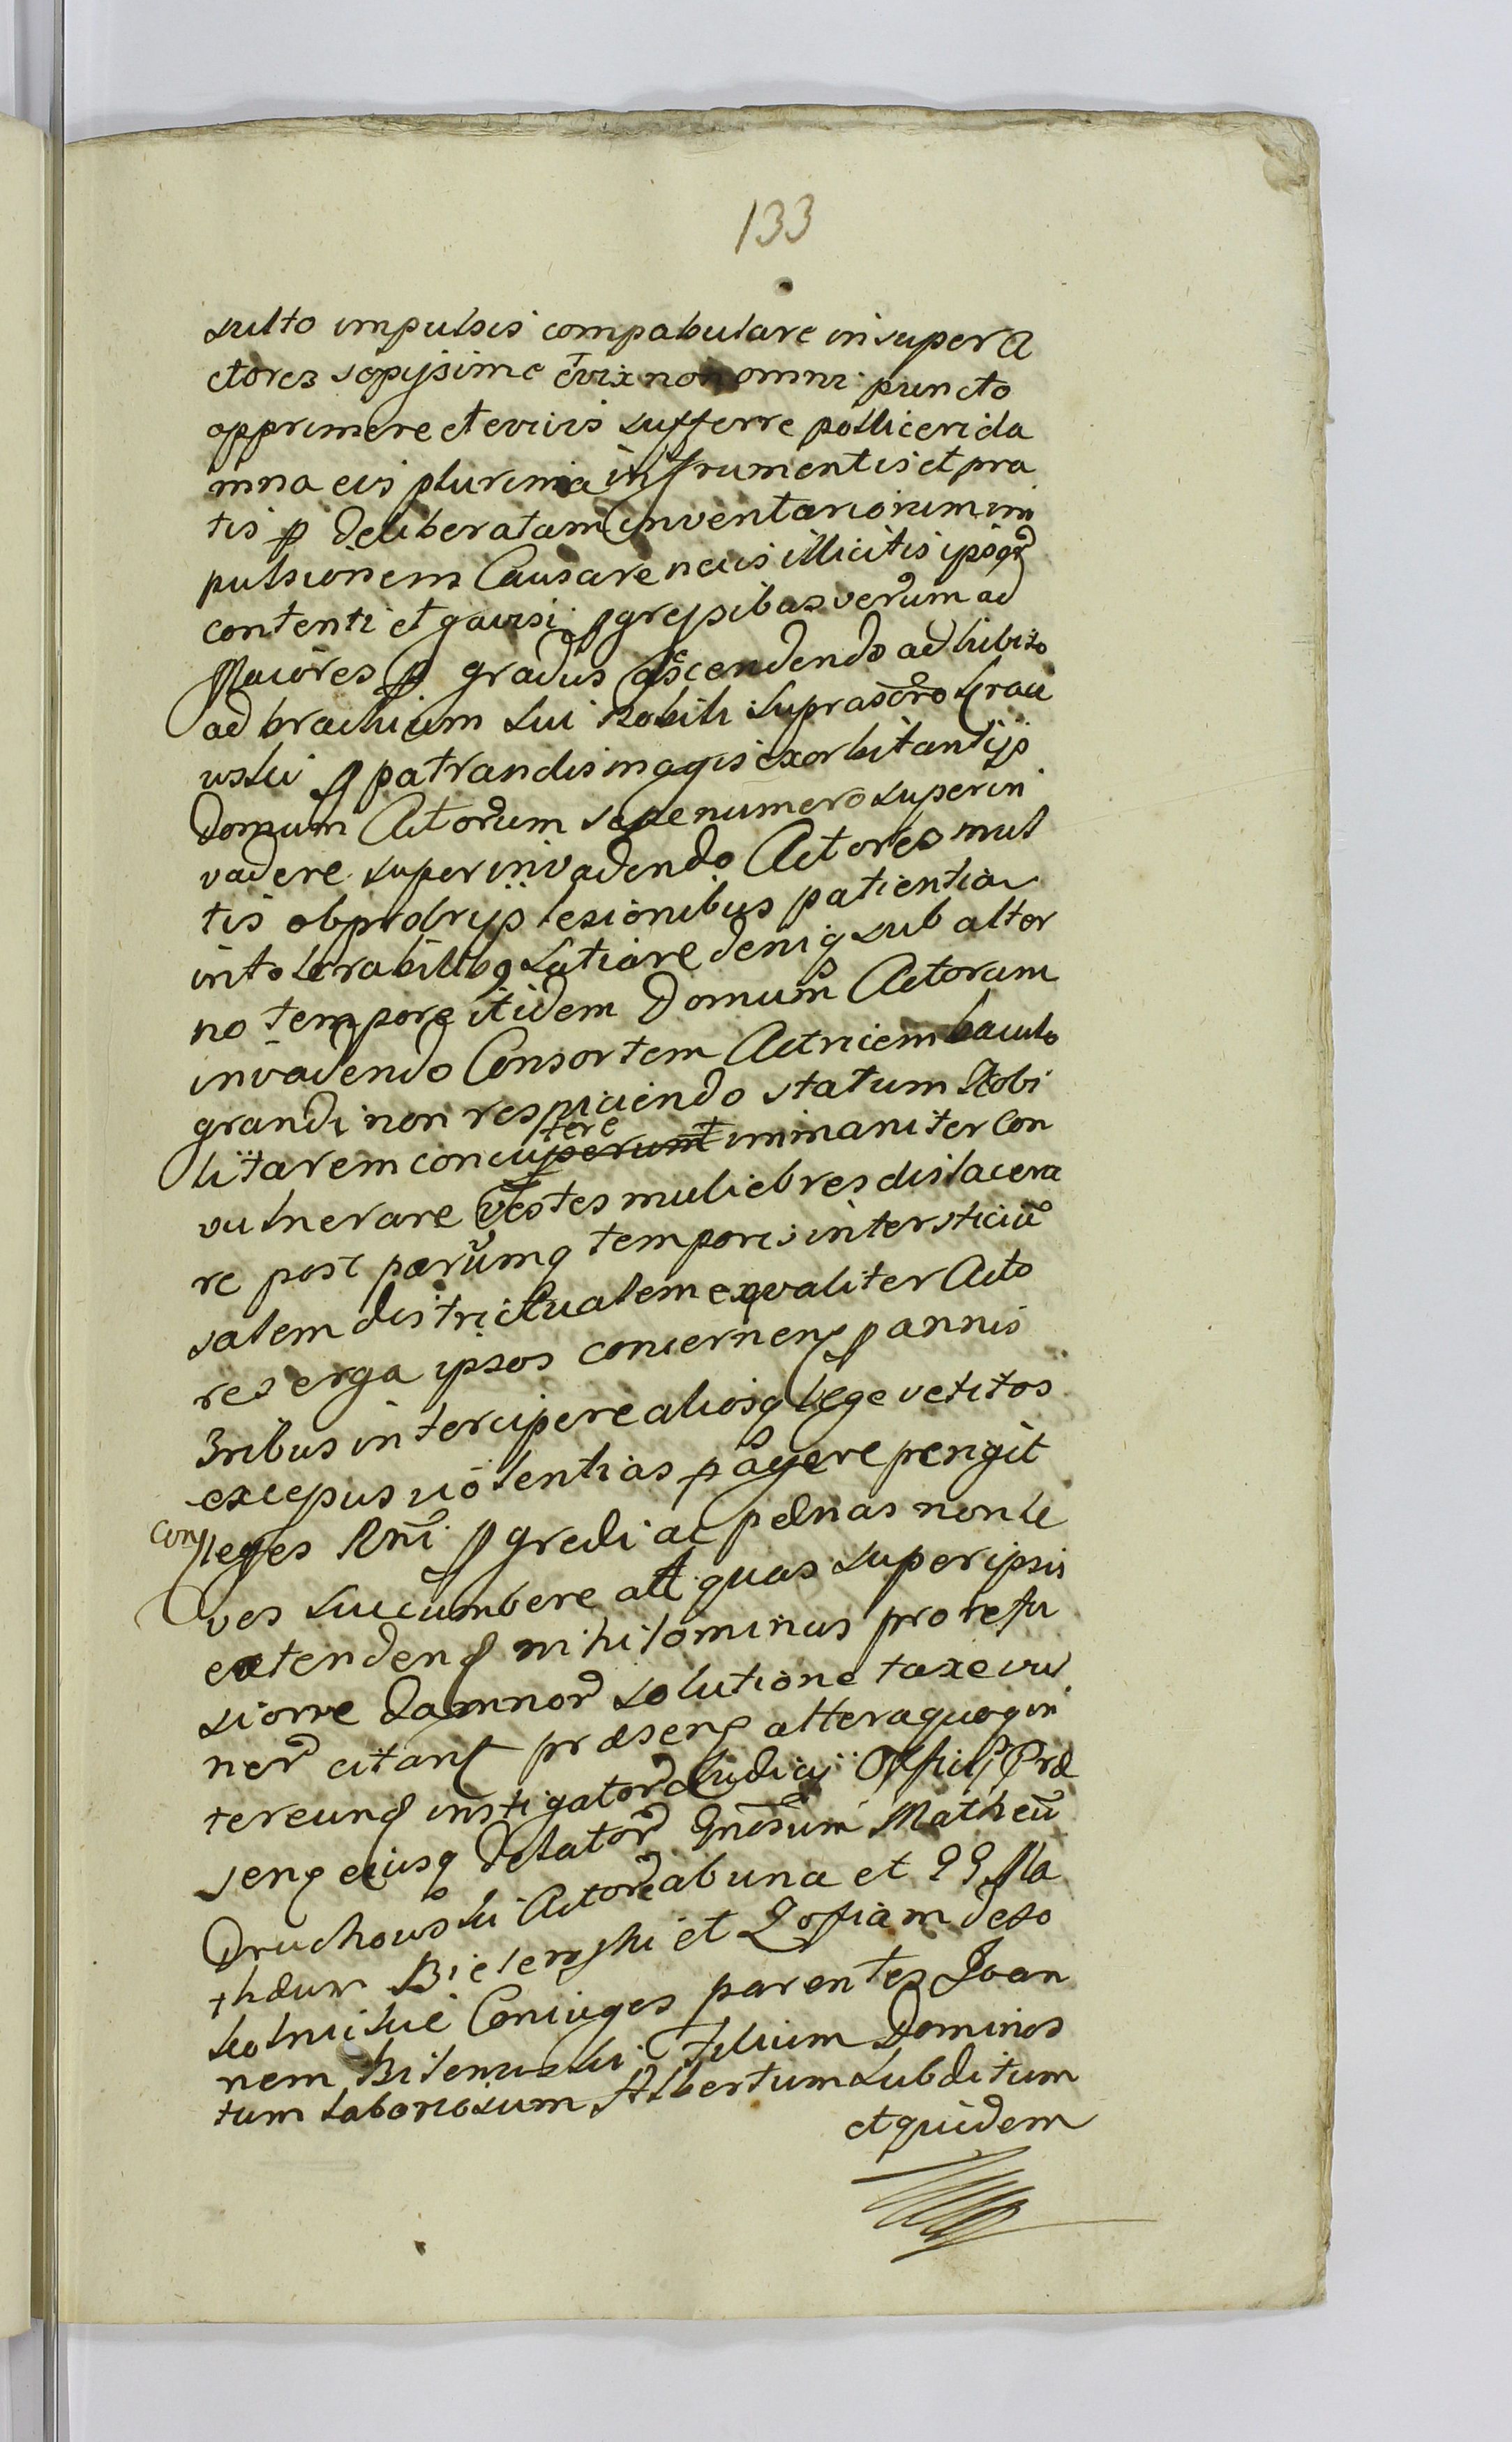 133
sulto impulsis compabulare insuper A
ctores sepissime et vix non omni puncto
opprimere et e vivis sufferre polliceri da
mna eis plurima in frumentis et pra
tis p deliberatam inventariorum im
pulsionem Causare neus illicitis ipsor
contenti et gavisi pgressibus verum ad
Maiores p gradus ascendendo adhibito
ad brachium sui Nobili suprascro Grau
wski p patrandis magis exorbitantijs
Domum Actorum sepenumero superin
vadere superinvadendo Actores mul
tis obprobrijs lesionibus patientia
intolerabilibq satiare deniq sub alter
no tempore itidem Domum Actorum
invadendo Consortem Actricem baculo
grandi non respiciendo statum Nobi
litarem concuperunt tere immaniter Con
vulnerare Vestes muliebres dislacera
re post parumq temporis intersticiu
salem districtualem eqvaliter Acto
res erga ipsos concernen pannis
3ribus intercipere aliosq lege vetitos
excessus violentias pagere pergit
Con leges Rni pgredi ac pænas non le
ves succumbere att quas super ipsis
extenden nihilominus pro refu
sione damnor solutione taxe vul
ner citant præsens alteraquoq in
tereund instigator Judicij Officij Præ
sens eiusq Delator Gnosum Matheu
Druchowski Actore ab una et GG Ma
thæum Bielenski et Zofiam de So
kolniki Coniuges parentes Joan
nem Bilenski Filium Dominos
tum laboriosum Albertum subditum
et quidem